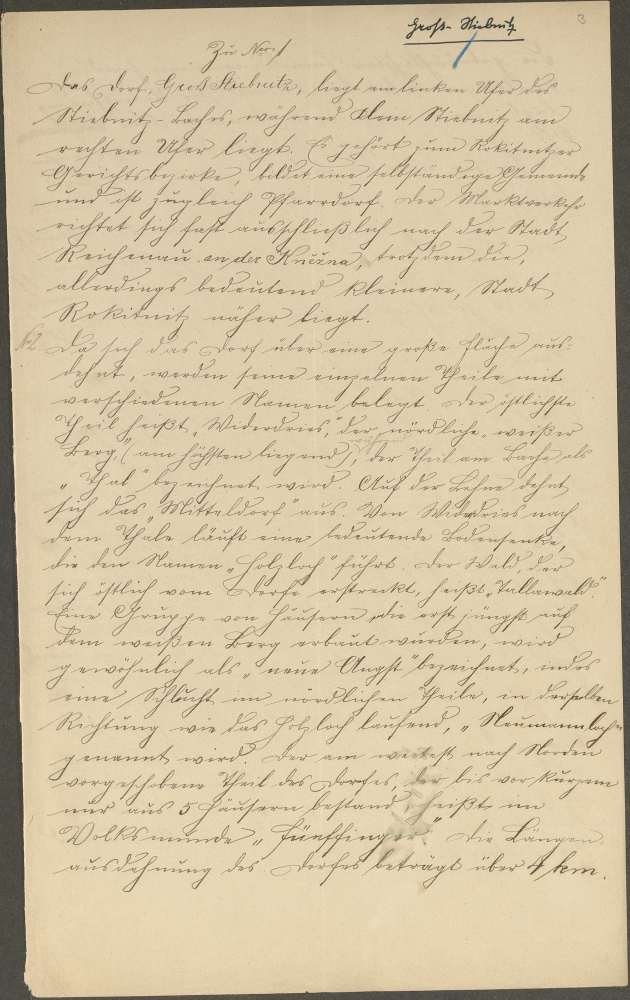 Groß-Stiebnitz
3
Zu Nro: 1
Das Dorf, Groß Stiebnitz, liegt am linken Ufer des
Stiebnitz-Baches, während Klein Stiebnitz am
rechten Ufer liegt. Es gehört zum Rokitnitzer
Gerichtsbezirke, bildet eine selbständige Gemeinde
und ist zugleich Pfarrdorf. Der Marktverkehr
richtet sich fast ausschließlich nach der Stadt
Reichenau an der Kněžna, trotzdem die,
allerdings bedeutend kleinere, Stadt
Rokitnitz näher liegt.
Da sich das Dorf über eine große Fläche aus-
dehnt, werden seine einzelnen Theile mit
verschiedenen Namen belegt. Der östlichste
Theil heißt „Widerdries, der nördliche „weißer
Berg," (am höchsten liegend), der Theil am Bache als
„Thal" bezeichnet wird. Auf der Lehne dehnt
sich das „Mitteldorf" aus. Von Widerdries nach
dem Thale läuft eine bedeutende Bodensenke,
die den Namen „Holzloch" führt. Der Wald, der
sich östlich vom Dorfe erstreckt, heißt „Tallawald".
Eine Gruppe von Häusern, die erst jüngst auf
dem weißen Berg erbaut wurden, wird
gewöhnlich als „neue Angst" bezeichnet, indes
eine Schlucht im nördlichen Theile, in derselben
Richtung wie das Holzloch laufend, „Neumannloch"
genannt wird. Der am weitest nach Norden
vorgeschobene Theil des Dorfes, der bis vor kurzem
nur aus 5 Häusern bestand, heißt im
Volksmunde „Fünffinger". Die Längen-
ausdehnung des Dorfes beträgt über 4 km.